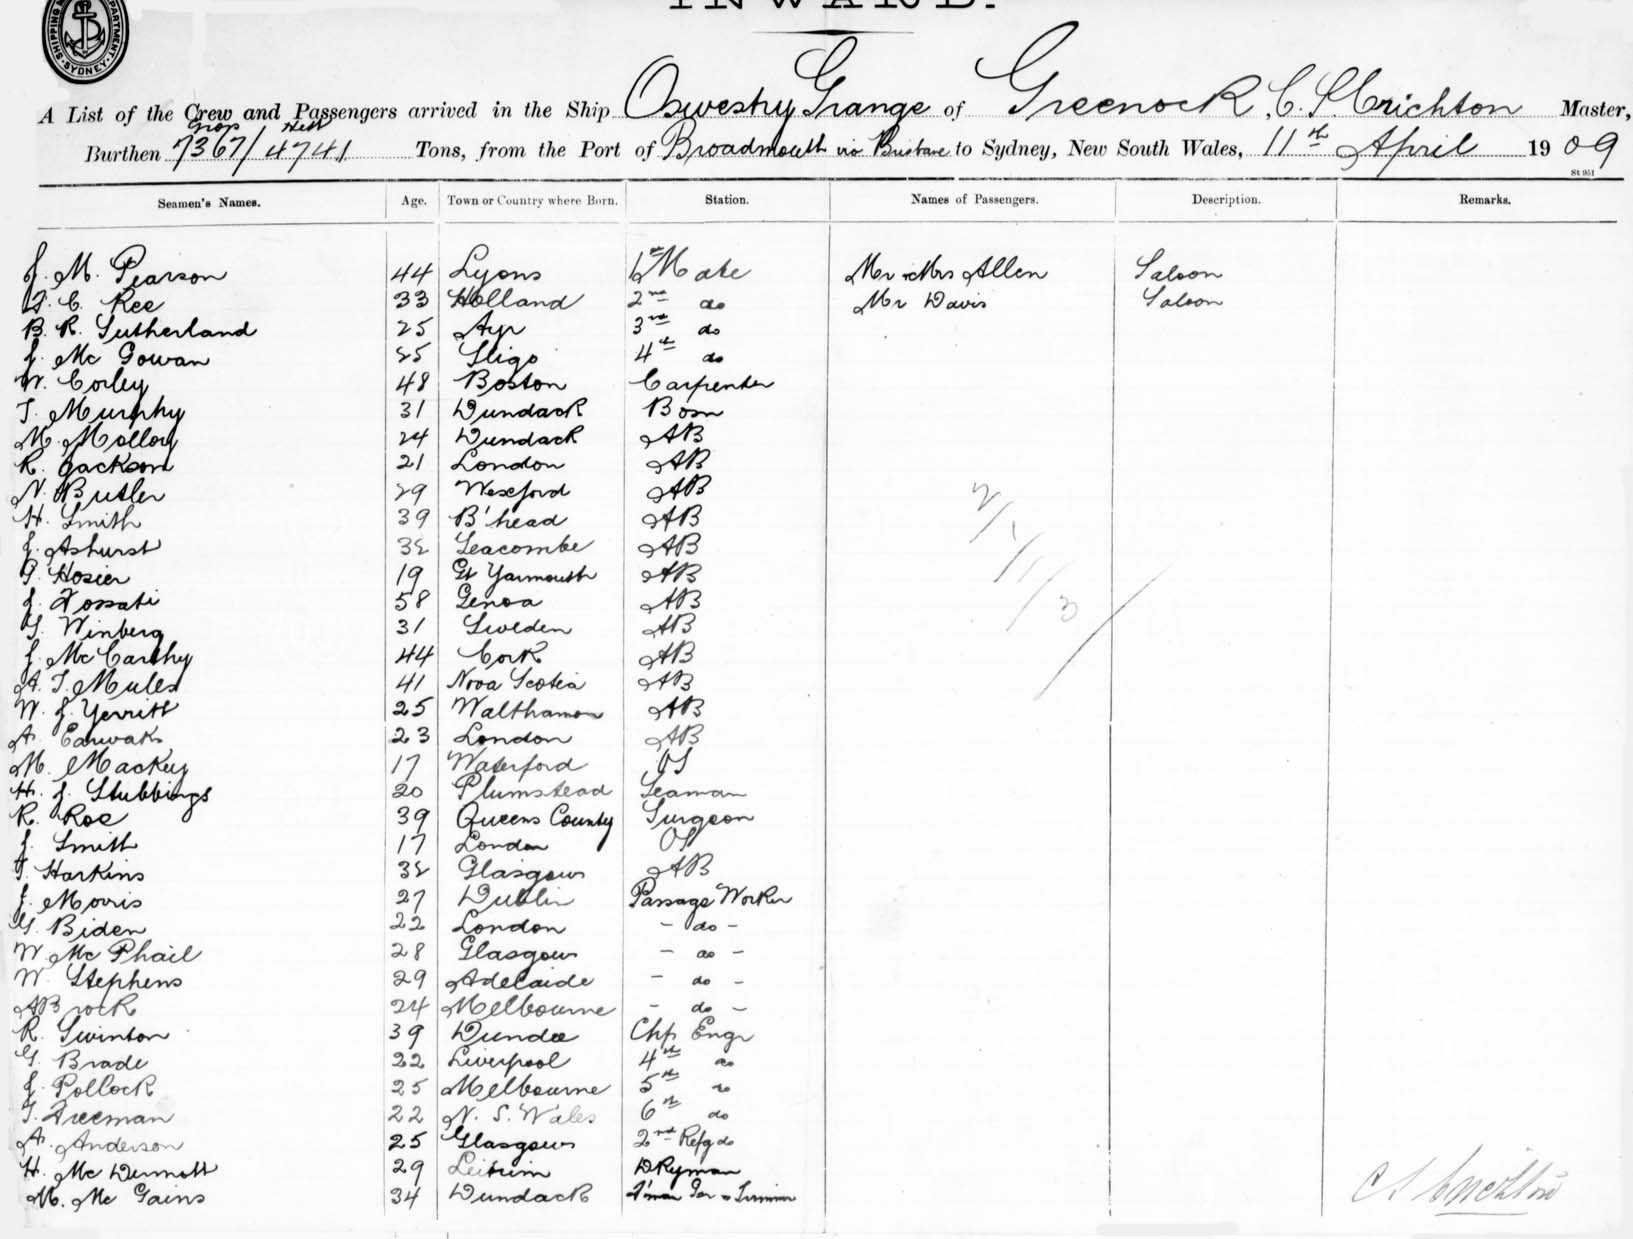 INWARD.
SHIPPING DEPARTMENT SYDNEY
A List of the Crew and Passengers arrived in the Ship Oswestry Grange of Greenock, C. S. Crichton Master,
Gross Nett
Burthen 7367/4741 Tons, from the Port of Broadmouth via Brisbane to Sydney, New South Wales, 11th April 1909
St 951
Seamen's Names. Age. Town or Country where Born. Station. Names of Passengers. Description. Remarks.
J. M. Pearson 44 Lyons 1st Mate Mr & Mrs Allen Saloon
F. C. Ree 33 Holland 2nd do Mr Davis Saloon
B. R. Sutherland 25 Ayr 3rd do
J. Mc Gowan 25 Sligo 4th do
W. Corley 48 Boston Carpenter
T. Murphy 31 Dundack Bosn
M. Molloy 24 Dundack AB
R. Jackson 21 London AB
N. Butler 29 Wexford AB
H. Smith 39 B'head AB
J. Ashurst Seacombe AB
G. Hosier 19 Gt Yarmouth AB
J. Fossati 58 Genoa AB
G. Winberg 31 Sweden AB
J. McCarthy 44 Cork AB
A. T. Mules 41 Nova Scotia AB
W. J. Yerritt 25 Walthamon AB
A. Earwaks 23 London AB
M. Mackey 17 Waterford OS
H. J. Stubbings 20 Plumstead Seaman
R. Roe 39 Queens County Surgeon
J. Smith 17 London OS
T. Harkins Glasgow AB
J. Morris 27 Dublin Passage Worker
G. Biden 22 London - do -
W. Mc Phail 28 Glasgow - do -
W. Stephens 29 Adelaide - do -
A Brock 24 Melbourne - do -
R. Swinton 39 Dundee Chf Engr
G. Brade 22 Liverpool 4th do
J. Pollock 25 Melbourne 5th do
T. Freeman 22 N. S. Wales 6th do
A. Anderson 25 Glasgow 2nd Refg do
H. Mc Dermott 29 Leitrim DKyman
M. Mc Gains 34 Dundack F'man Gr & Trimmer
2/1/11/3/
C S Crichton